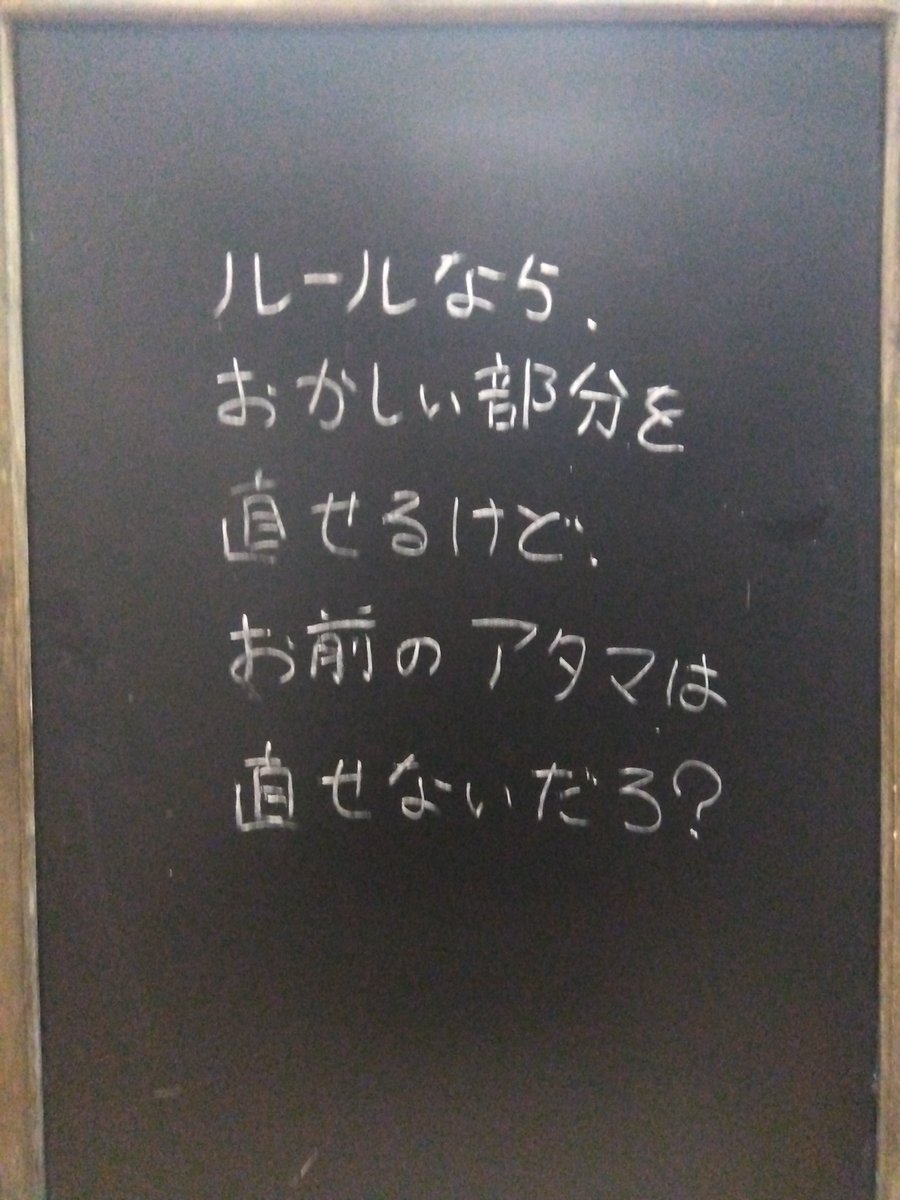 ルールなら、
おかしい部分を
直せるけど、
お前のアタマは
直せないだろ?